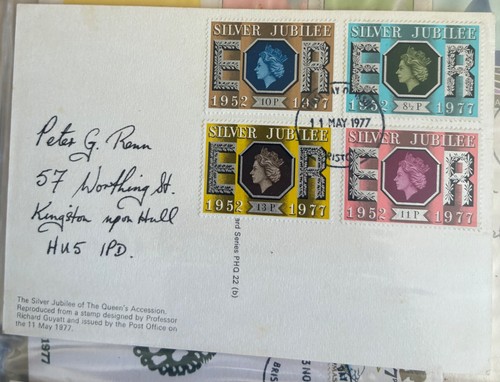 SILVER JUBILEE
E R
1952 10P 1977
SILVER JUBILEE
E R
1952 8½P 1977
SILVER JUBILEE
E R
1952 13P 1977
SILVER JUBILEE
E R
1952 11P 1977
DAY OF
11 MAY 1977
BRISTOL
Peter G. Renn
57 Worthing St.
Kingston upon Hull
HU5 1PD.
ard Series PHQ 22 (b)
The Silver Jubilee of The Queen's Accession.
Reproduced from a stamp designed by Professor
Richard Guyatt and issued by the Post Office on
the 11 May 1977.
1977